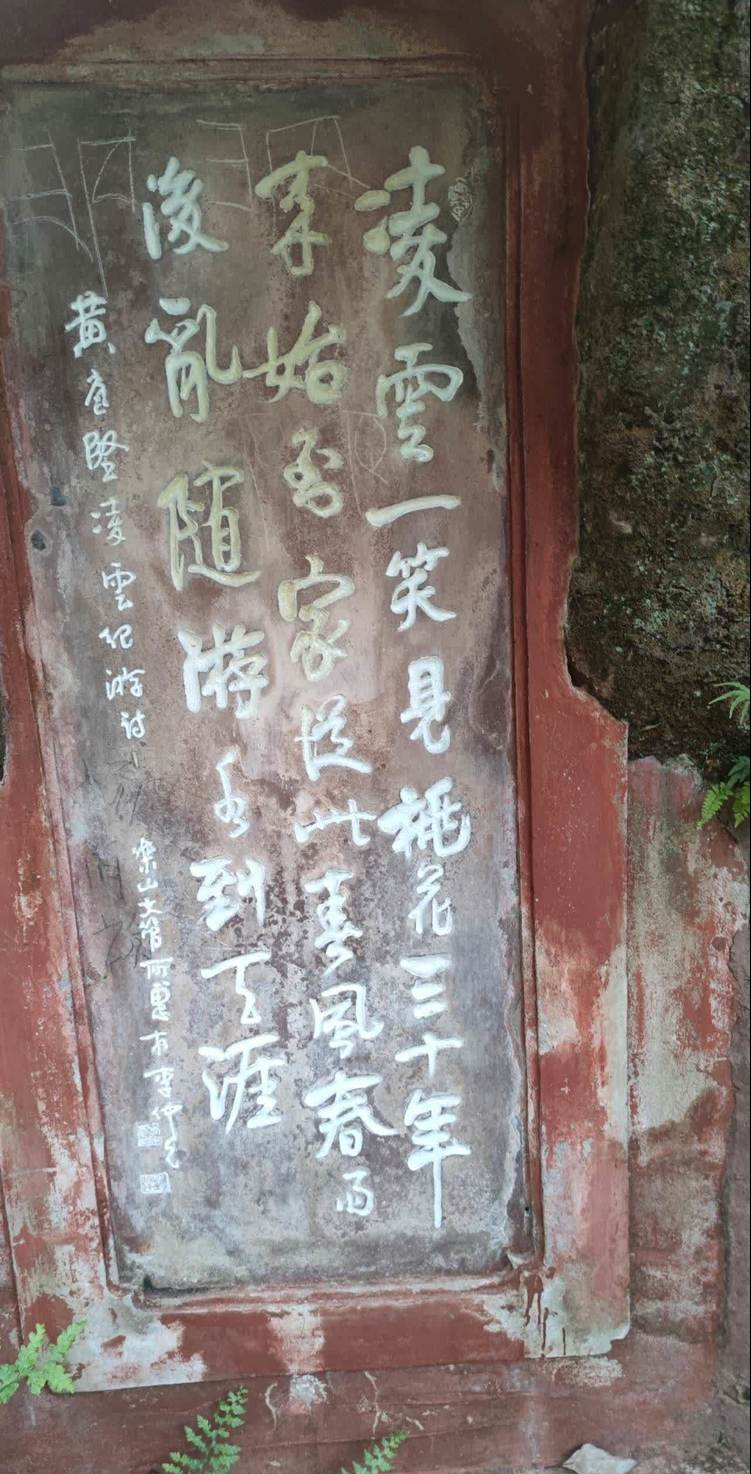 凌雲一笑見桃花三十年
来始到家從此春風春雨
後亂随流水到天涯
黄庭堅凌雲紀游詩
樂山文管所惠存李仲